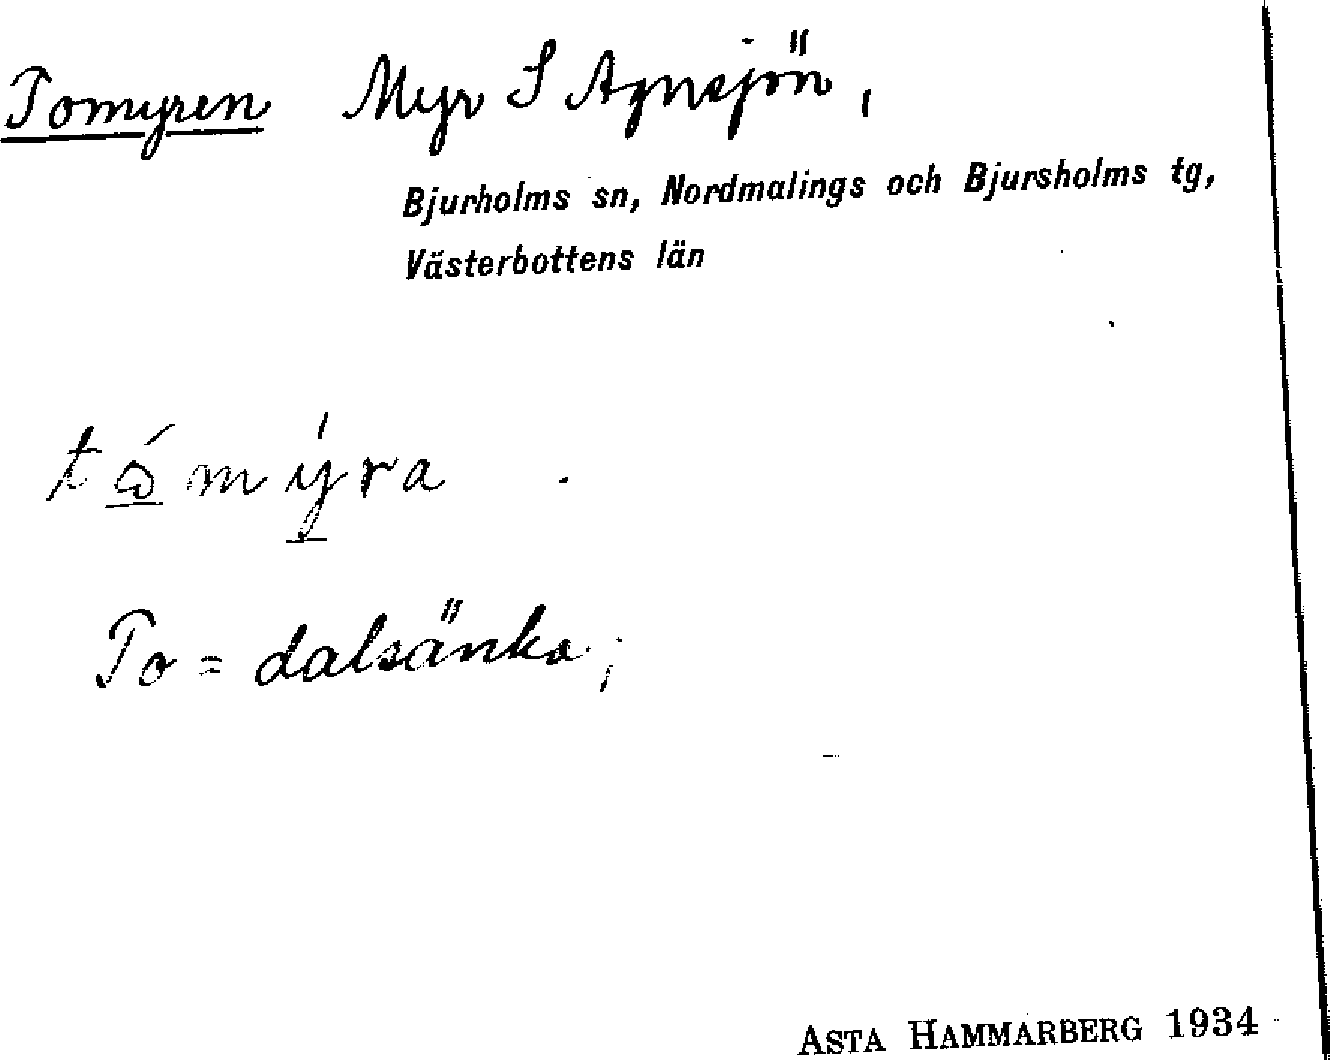 Tomyren Myr S Agnsjön,
Bjurholms sn, Nordmalings och Bjursholms tg,
Västerbottens län
tómýra
To = dalsänka;
ASTA HAMMARBERG 1934